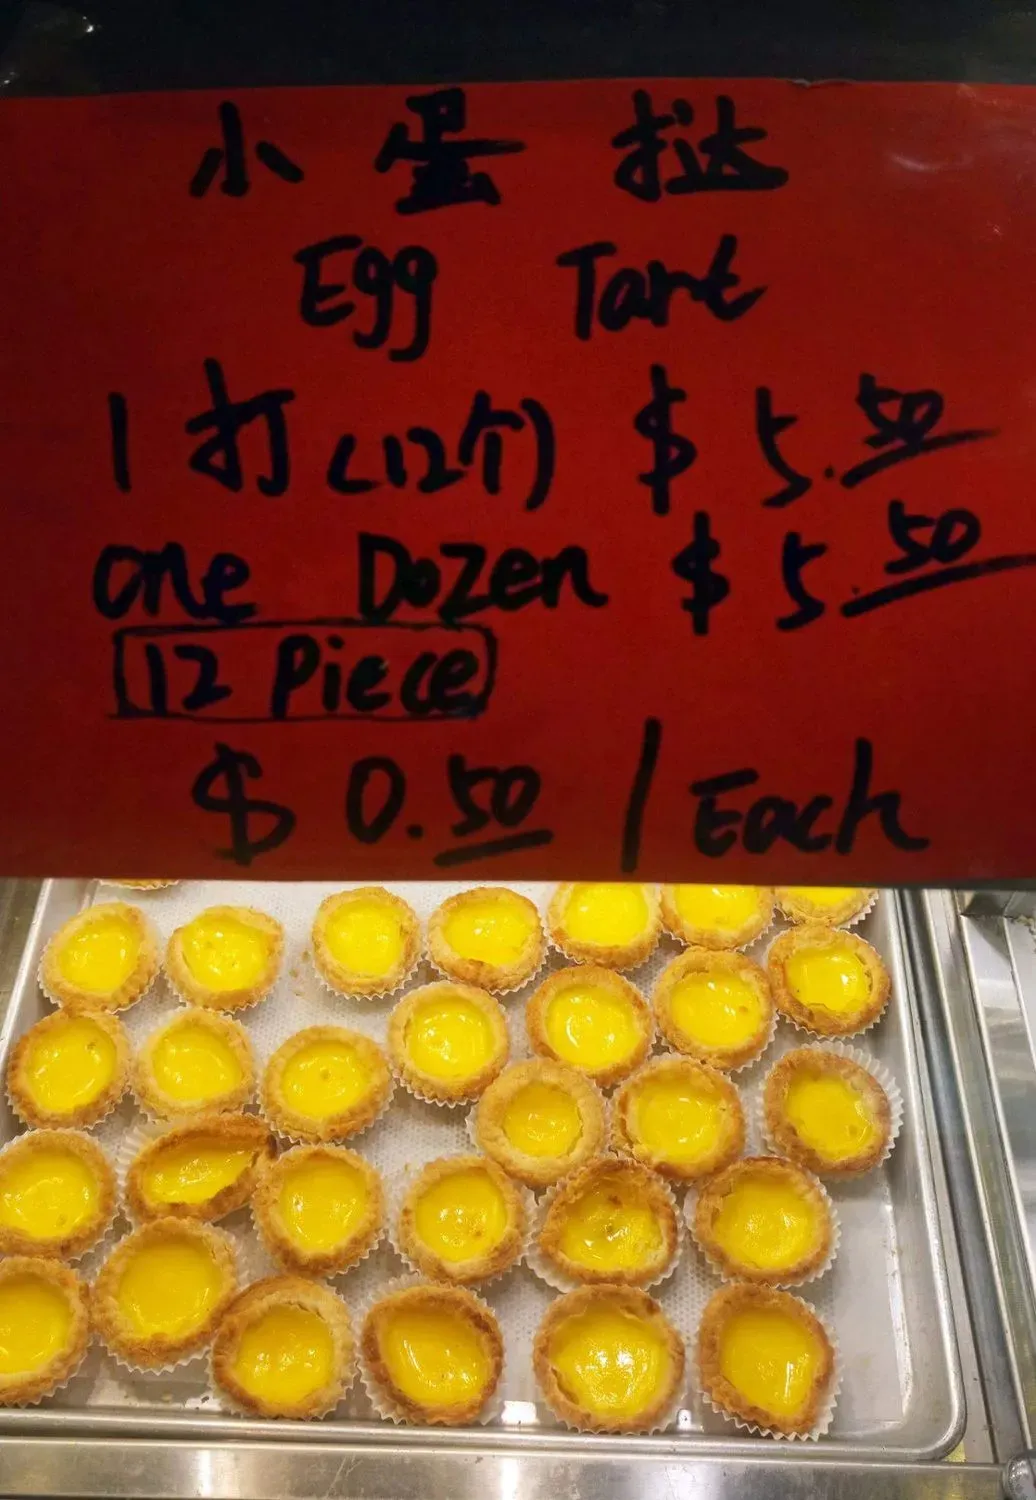 小蛋挞
Egg Tart
1打(12个) $5.50
one Dozen $5.50
12 Piece
$0.50/Each